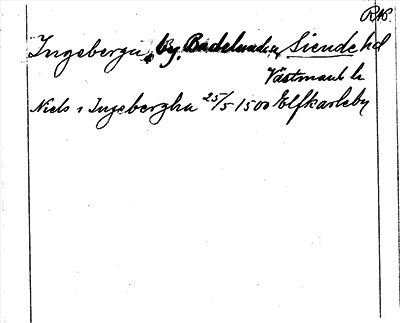 RAP.
Ingeberga, by, Badelunda, Siende hd
Västmanl. l.
Niels i Ingebergha 25/5 1500 Elfkarleby